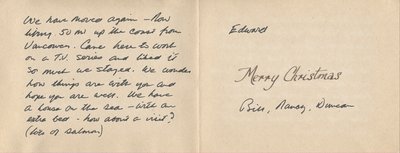 We have moved again - Now
living 50 m up the coast from
Vancouver. Came here to work
on a T.V. series and liked it
so much we stayed. We wonder
how things are with you and
hope you are well. We have
a house on the sea - with an
extra bed - how about a visit?
(lots of salmon)
Edward
Merry Christmas
Bill, Nancy, Duncan